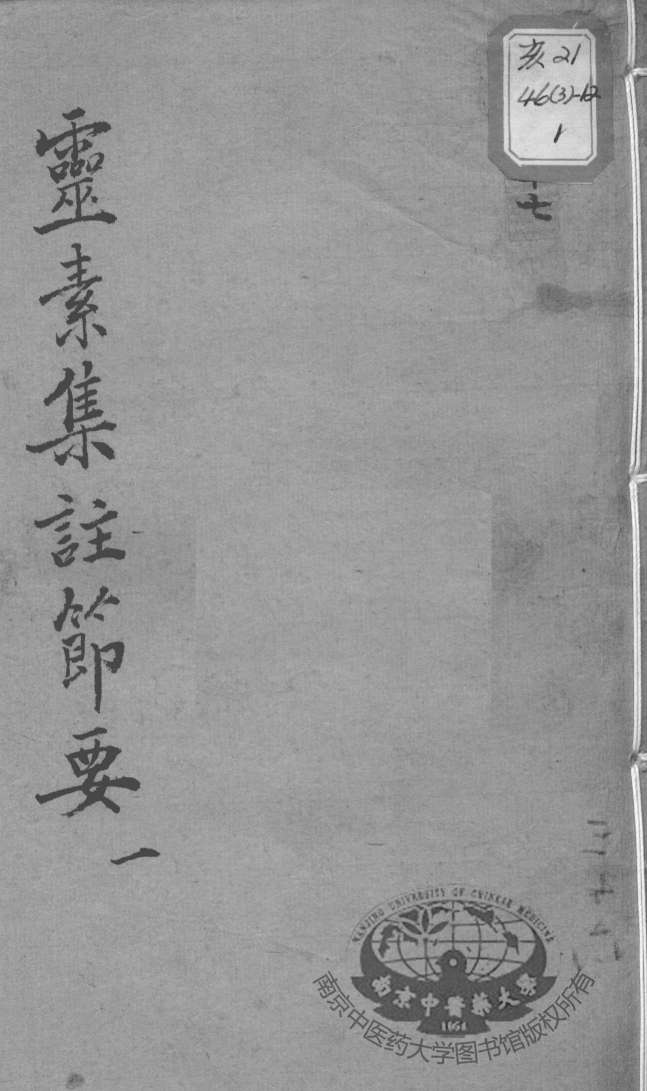 靈素集註節要
一
亥21
46(3)-12
1
七
NANJING UNIVERSITY OF CHINESE MEDICINE
南京中醫藥大學
1954
南京中医药大学图书馆版权所有